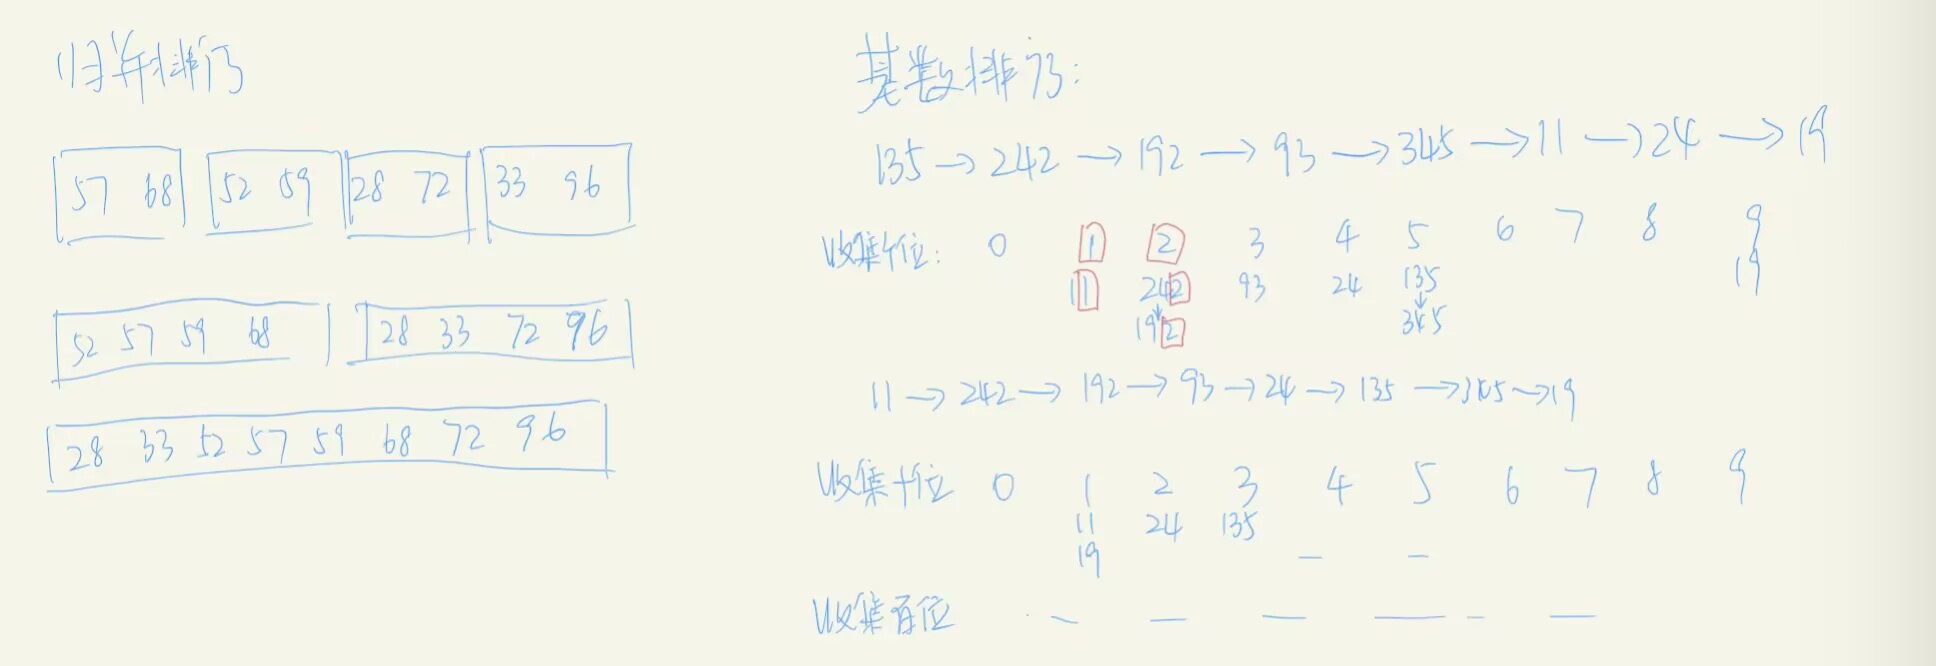 归并排序
57 68 52 59 28 72 33 96
52 57 59 68 28 33 72 96
28 33 52 57 59 68 72 96
基数排序:
135→242→192→93→345→11→24→19
收集个位: 0 1 2 3 4 5 6 7 8 9
11 242 93 24 135 19
192 345
11→242→192→93→24→135→345→19
收集十位 0 1 2 3 4 5 6 7 8 9
11 24 135
19 — —
收集百位 — — — — — —